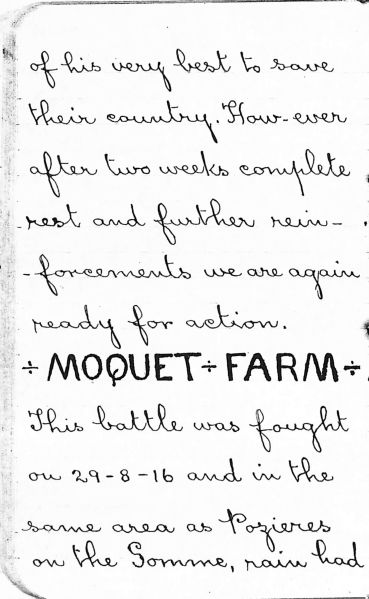 of his very best to save
their country. How-ever
after two weeks complete
rest and further rein-
-forcements we are again
ready for action.
÷ MOQUET ÷ FARM ÷
This battle was fought
on 29-8-16 and in the
same area as Pozieres
on the Somme, rain had